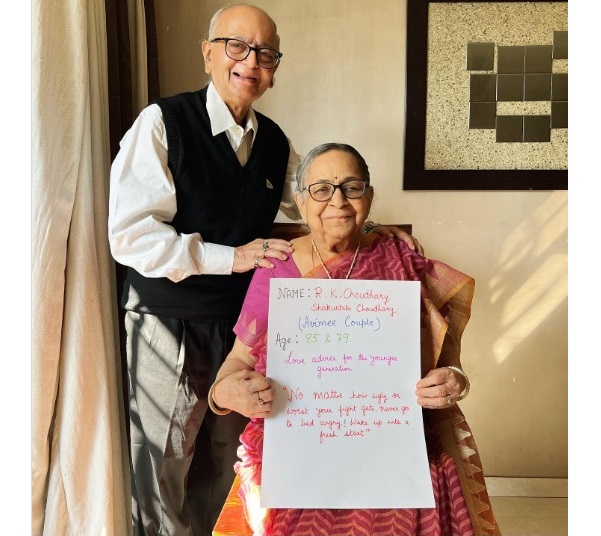 NAME: R. K. Choudhary
Shakuntala Choudhary
(Avimee Couple)
Age: 85 & 79
Love advice for the younger
generation
"No matter how ugly or
worst your fight gets, never go
to bed angry! Wake up with a
fresh start"